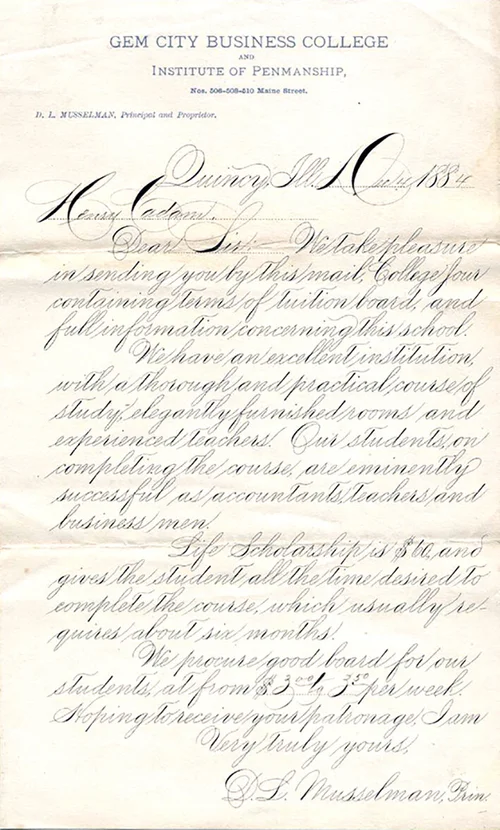 GEM CITY BUSINESS COLLEGE
AND
INSTITUTE OF PENMANSHIP,
Nos. 506-508-510 Maine Street.
D. L. MUSSELMAN, Principal and Proprietor.
Quincy, Ill. 1884
Henry Cadam.
Dear Sir: We take pleasure
in sending you by this mail, College Jour
containing terms of tuition board, and
full information concerning this school.
We have an excellent institution,
with a thorough and practical course of
study, elegantly furnished rooms and
experienced teachers. Our students, on
completing the course, are eminently
successful as accountants, teachers and
business men.
Life Scholarship is $60, and
gives the student all the time desired to
complete the course, which usually re-
quires about six months.
We procure good board for our
students, at from $3.00 to 3.50 per week.
Hoping to receive your patronage, I am
Very truly yours,
D. L. Musselman, Prin.